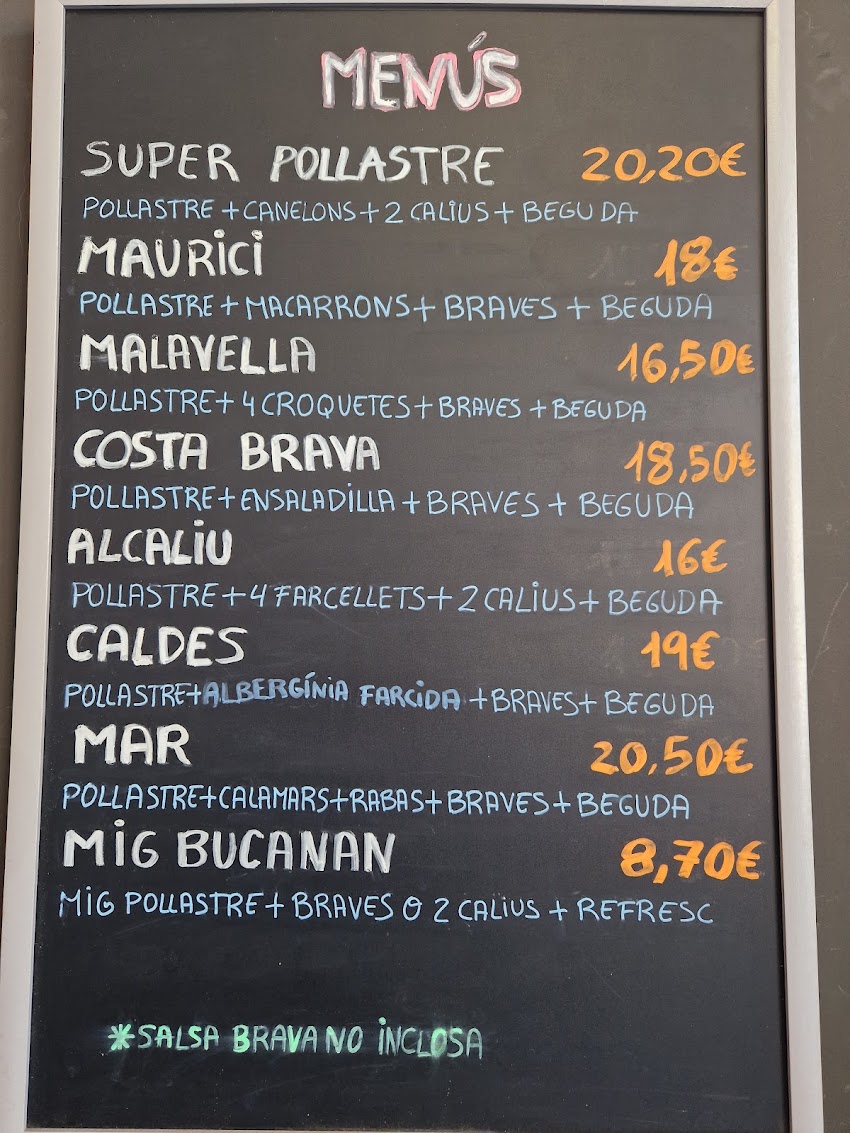 MENÚS
SUPER POLLASTRE 20,20€
POLLASTRE + CANELONS + 2 CALIUS + BEGUDA
MAURICI 18€
POLLASTRE + MACARRONS + BRAVES + BEGUDA
MALAVELLA 16,50€
POLLASTRE + 4 CROQUETES + BRAVES + BEGUDA
COSTA BRAVA 18,50€
POLLASTRE + ENSALADILLA + BRAVES + BEGUDA
ALCALIU 16€
POLLASTRE + 4 FARCELLETS + 2 CALIUS + BEGUDA
CALDES 19€
POLLASTRE + ALBERGÍNIA FARCIDA + BRAVES + BEGUDA
MAR 20,50€
POLLASTRE + CALAMARS + RABAS + BRAVES + BEGUDA
MIG BUCANAN 8,70€
MIG POLLASTRE + BRAVES O 2 CALIUS + REFRESC
*SALSA BRAVA NO INCLOSA